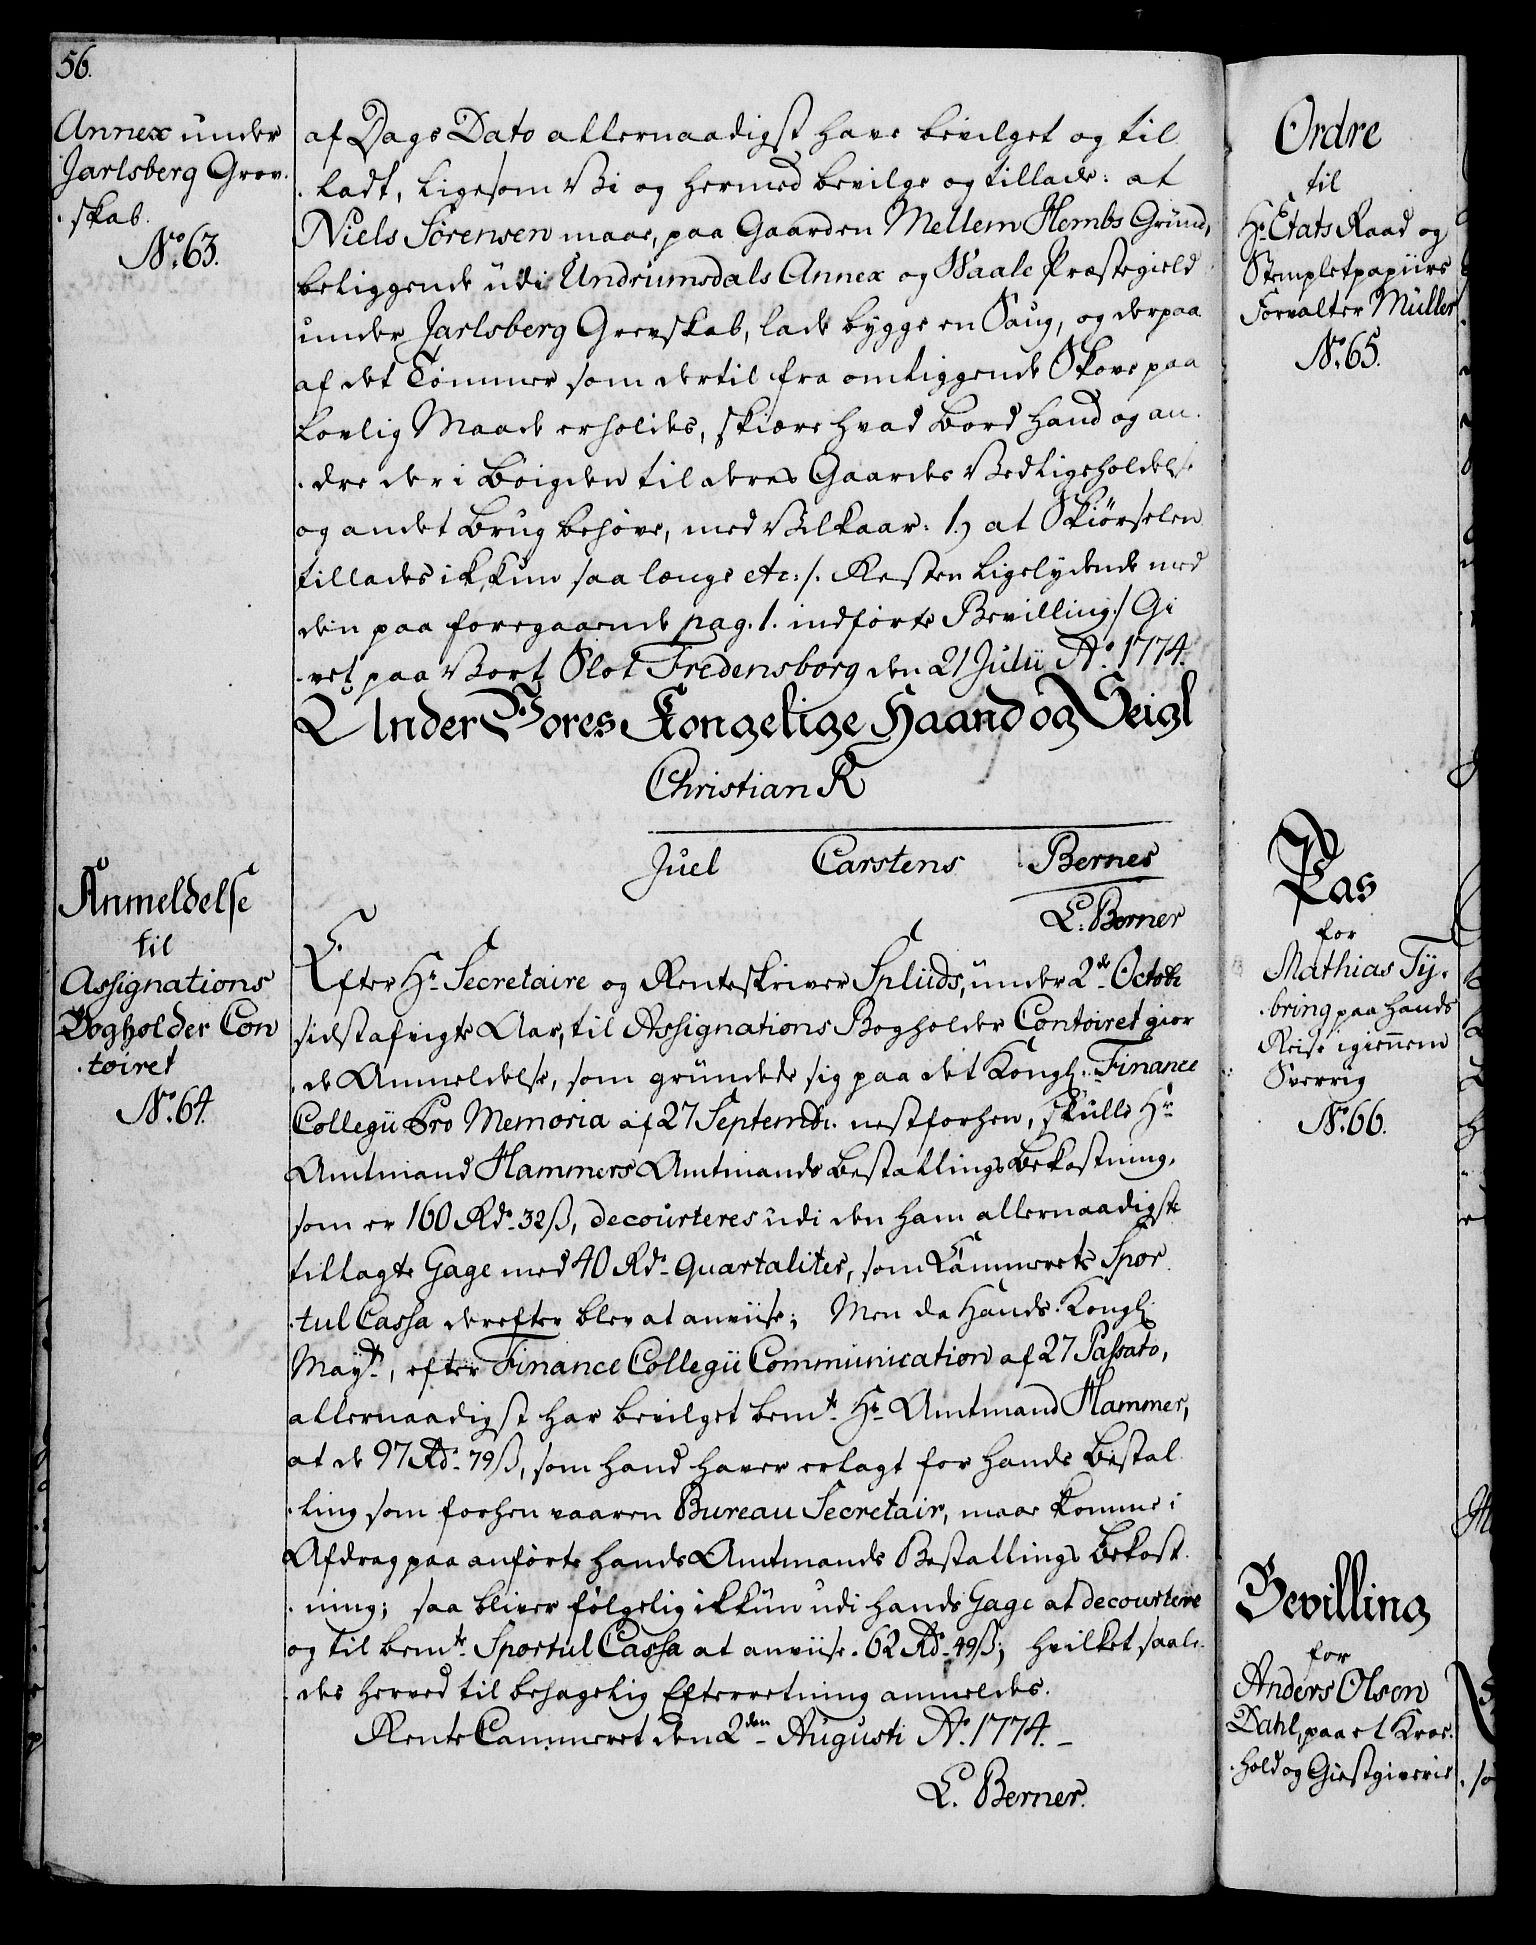 56.
Annex under
Jarlsberg Grev.
. skab.
No. 63.
af Dags Dato allernaadigst have bevilget og til
. ladt, ligesom Vi og hermed bevilge og tillade: at
Niels Sörensen maae, paa Gaarden Mellem Hembs Grund,
beliggende udi Undrumsdals Annex og Waale Præstegield
under Jarlsberg Grevskab, lade bygge en Saug, og derpaa
af det Tömmer som dertil fra omliggende Skove paa
Lovlig Maade erholdes, skiære hvad Bord hand og an.
. dre der i Böigden til deres Gaardes Vedligeholdelse
og andet Brug behöve, med Vilkaar: 1.) at Skiörselen
tillades ikkun saa længe etc: /. Resten ligelydende med
den paa foregaaende pag. 1. indförte Bevilling ./ Gi
. vet paa Vort Slot Fredensborg den 21 Julii Ao. 1774.
Under Vores Kongelige Haand og Seigl
Christian R
Juel Carstens Berner
L. Berner
Anmeldelse
til
Assignations
Bogholder Con
. toiret
No. 64.
Efter Hr. Secretaire og Renteskriver Spliids, under 2de Octobr
sidstafvigte Aar, til Assignations Bogholder Contoiret gior
. de Anmeldelse, som grundede sig paa det Kongl: Finance
Collegii Pro Memoria af 27 Septembr. nestforhen, skulle Hr
Amtmand Hammers Amtmands Bestallings Bekostning,
som er 160 Rdr. 32 ß, decourteres udi den ham allernaadigst
tillagte Gage med 40 Rdr. quartaliter, som Kammerets Spor
. tul Cassa derefter blev at anviise; Men da Hands Kongl.
Mayt., efter Finance Collegii Communication af 27 Passato,
allernaadigst har bevilget bemte. Hr. Amtmand Hammer,
at de 97 Rdr. 79 ß, som hand haver erlagt for hands Bestal
. ling som forhen vaaren Bureau Secretair, maae komme i
Afdrag paa anförte hands Amtmands Bestallings Bekost.
. ning; saa bliver fölgelig ikkun udi hands Gage at decourtere
og til bemte. Sportul Cassa at anviise. 62 Rdr. 49 ß; hvilket saale.
. des herved til behagelig Efterretning anmeldes.
Rente Cammeret den 2den Augusti Ao. 1774. –
L. Berner.
Ordre
til
Hr. Etats Raad og
Stempletpapiirs
Forvalter Müller
No. 65.
Pas
for
Mathias Ty.
. bring paa hands
Reise igiennem
Sverrig
No. 66.
Bevilling
for
Anders Olsen
Dahl, paa et Kroe.
. hold og Giestgiverie